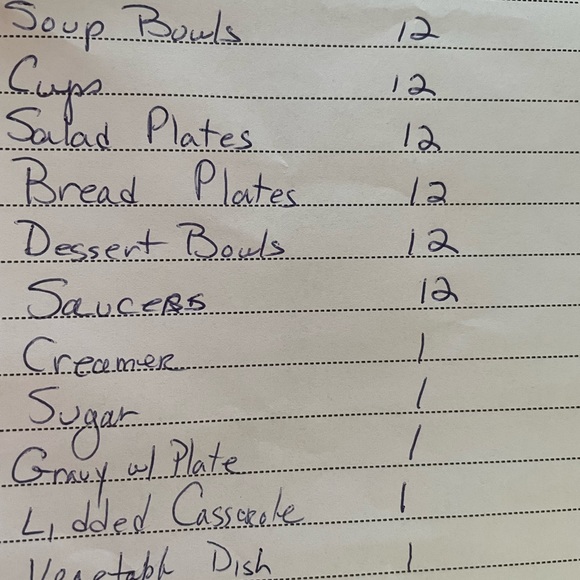 Soup Bowls 12
Cups 12
Salad Plates 12
Bread Plates 12
Dessert Bowls 12
Saucers 12
Creamer 1
Sugar 1
Gravy w/ Plate 1
Lidded Casserole 1
Vegetable Dish 1